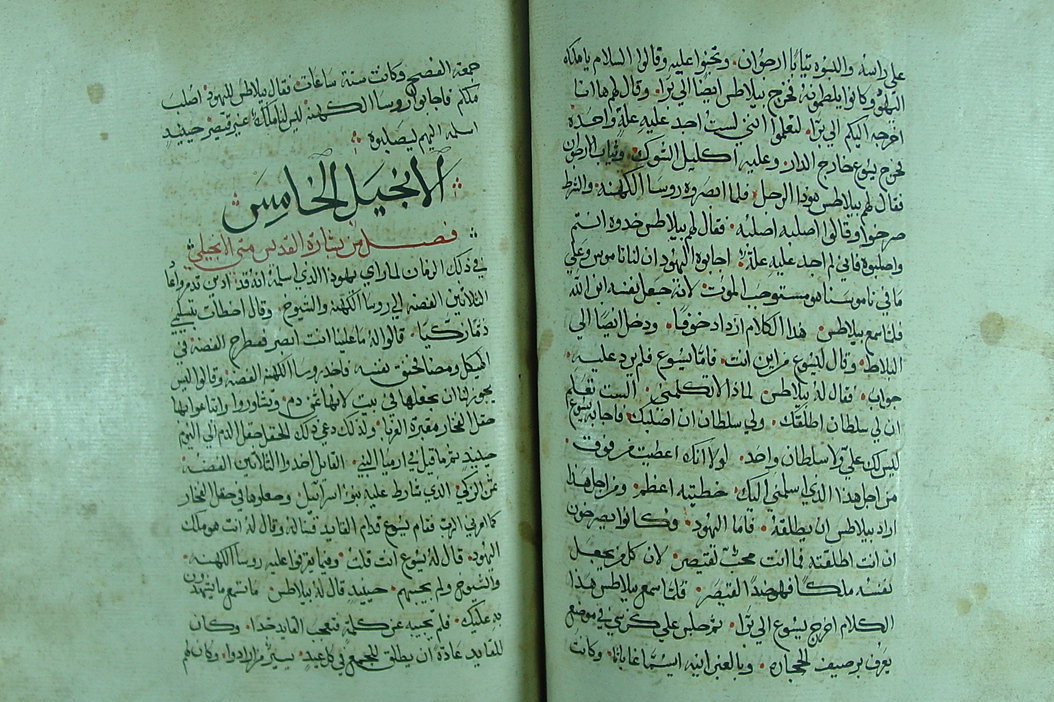 على راسه والبسوه ثيابًا ارجوان ونحوا عليه وقالوا السلام ياملك
اليهود وكانوا يلطمونه فخرج بيلاطس ايضًا الي برا وقال لهم ها انا
اخرجه اليكم الي برا لتعلموا انني لست اجد عليه علة واحدة
فخرج يسوع خارج الدار وعليه اكليل الشوك وثياب الارجوان
فقال لهم بيلاطس هوذا الرجل فلما ابصروه روسا الكهنة والشرط
صرخوا وقالوا اصلبه اصلبه فقال لهم بيلاطس خدوه انتم
واصلبوه فاني لم اجد عليه علة اجابوه اليهود ان لنا ناموس وعلي
ما في ناموسنا هو مستوجب الموت لانه جعل نفسه ابن الله
فلما سمع بيلاطس هدا الكلام ازداد خوفا ودخل ايضا الي
البلاط وقال ليسوع من اين انت فاما يسوع فلم يرد عليه
جواب فقال له بيلاطس لماذا لا تكلمني الست تعلم
ان لي سلطان اطلقك ولي سلطان ان اصلبك فاجابه يسوع
ليس لك علي ولا سلطان واحد لولا انك اعطيت من فوق
من اجل هذا الدي سلمني اليك خطيته اعظم ومن اجل هذا
اراد بيلاطس ان يطلقه فاما اليهود وكانوا يصرخون
ان انت اطلقته فما انت محب لقيصر لان كل من يجعل
نفسه ملكًا فهو ضدا لقيصر فلما سمع بيلاطس هدا
الكلام اخرج يسوع الي برا ثم جلس علي كرسي في موضع
يعرف برصيف الحجاره وبالعبرانيه وكانت
جمعة الفصح وكانت ستة ساعات فقال بيلاطس لليهود اصلب
ملككم فاجابوا روسا الكهنة ليس لنا ملك غير قيصر حينيد
اسلمه اليهم ليصلبوه
الانجيل الخامس
فصل من بشارة القديس متي الانجيلي
في ذلك الزمان لما راي يهودا الدي اسلمه انه قد ادين ندم واعاد
الثلاثين الفضه الي روسا الكهنه والشيوخ وقال اخطات بتسليمي
دمًا زكيا قالوا له ما علينا انت ابصر فطرح الفضه في
الهيكل ومضا فخنق نفسه فاخد روسا الكهنة الفضة وقالوا ليس
يجوز لنا ان نجعلها في بيت لانها ثمن دم وتشاوروا وابتاعوا بها
حقل الفخار مقبرة الغربا ولذلك دعي ذلك الحقل حقل الدم الي اليوم
حينيد تم ما قيل في ارميا النبي القايل اخدوا الثلاثين الفضه
ثمن الزكي الذي شارط عليه بنوا اسراييل وجعلوها في حقل الفخار
كما امرني الرب فقام يسوع قدام القايد فساله وقال له انت هو ملك
اليهود قال له يسوع انت قلت وفيما يقرفوا عليه روسا الكهنه
والشيوخ ولم يجيبهم حينيد قال له بيلاطس ما تسمع ما يشهدون
به عليك فلم يجيبه عن كلمة فتعجب القايد جدا وكان
للقايد عادة ان يطلق للجمع في كل عيد من ارادوا وكان لهم